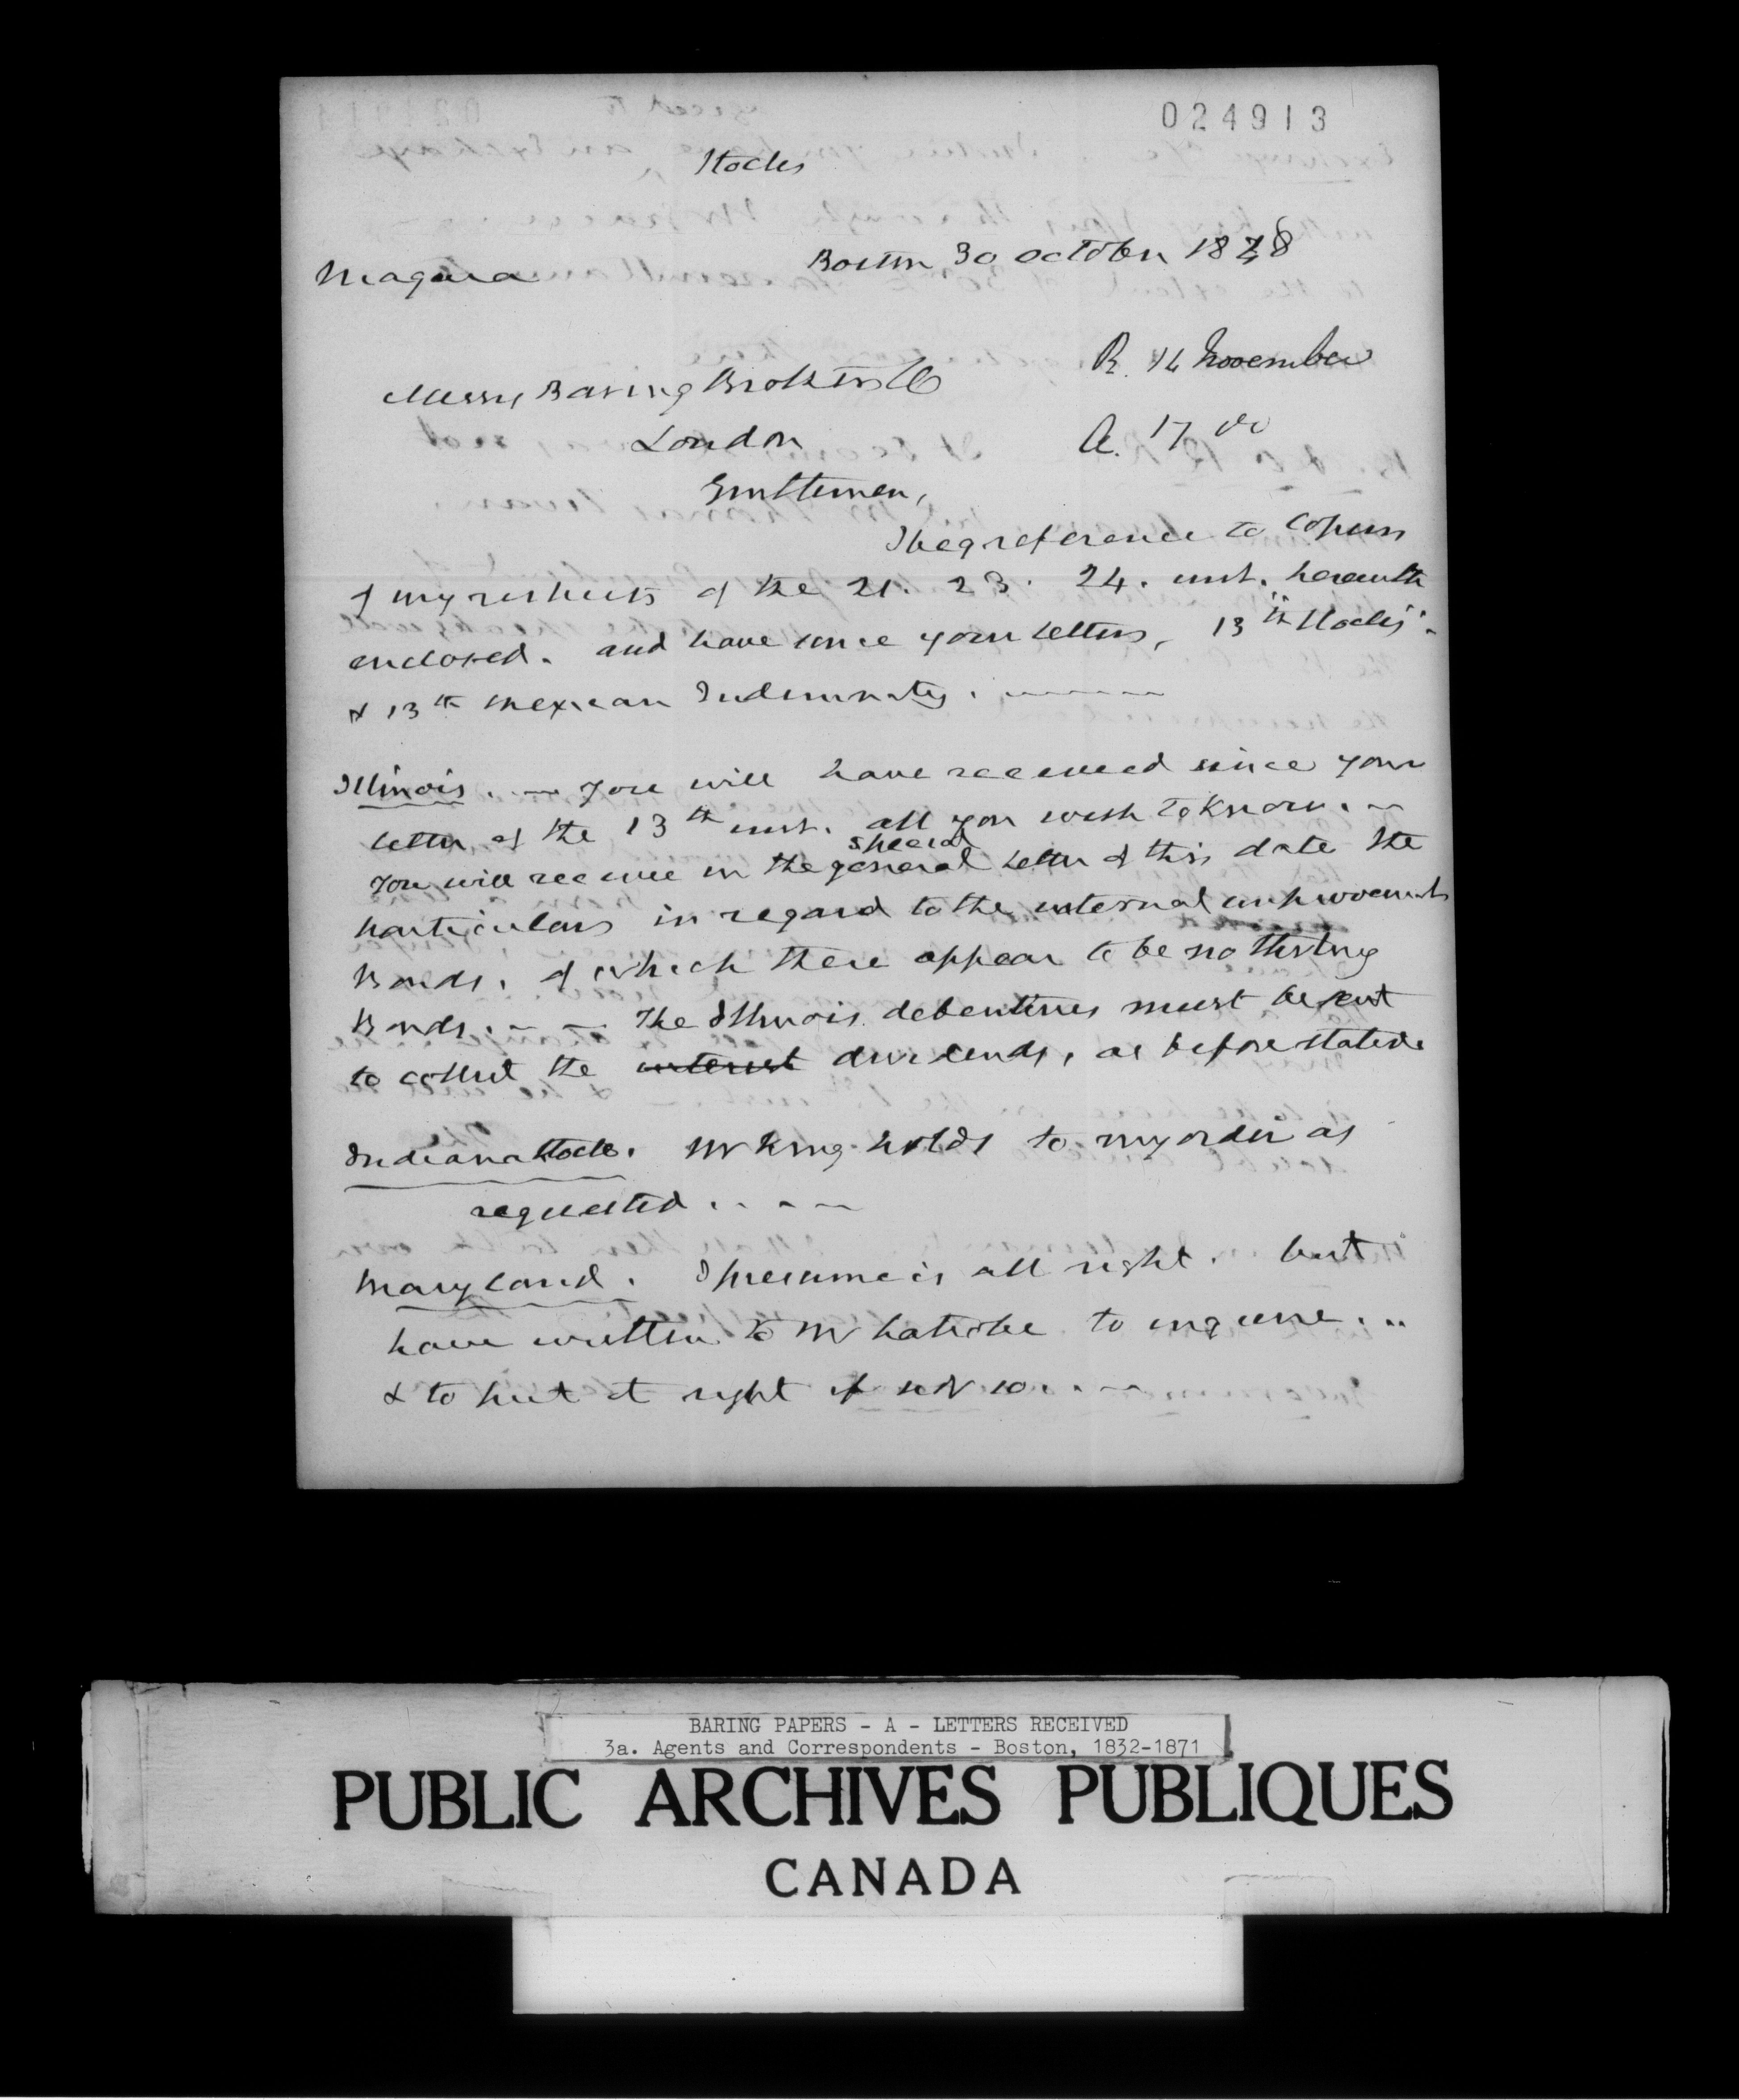 024913
Stocks
Boston 30 October 1848
Niagara
R. 14 November
Messrs Baring Brothers & Co
London
A. 17 do
Gentlemen,
I beg reference to copies
of my respects of the 21. 23. 24. inst. herewith
enclosed. and have since your letters, 13th "Stocks".
& 13th Mexican Indemnity.
Illinois. — You will have received since your
letter of the 13th inst. all you wish to know. —
special
You will receive in the general letter of this date the
particulars in regard to the internal improvements
Bonds, of which there appear to be no sterling
Bonds. — — The Illinois debentures must be sent
to collect the interest dividends, as before stated.
Indiana Stock. Mr King holds to my order as
requested. . - —
Maryland. I presume is all right. but
have written to Mr Latrobe to inquire. ..
& to put it right if not so. . . —
BARING PAPERS - A - LETTERS RECEIVED
3a. Agents and Correspondents - Boston, 1832-1871
PUBLIC ARCHIVES PUBLIQUES
CANADA